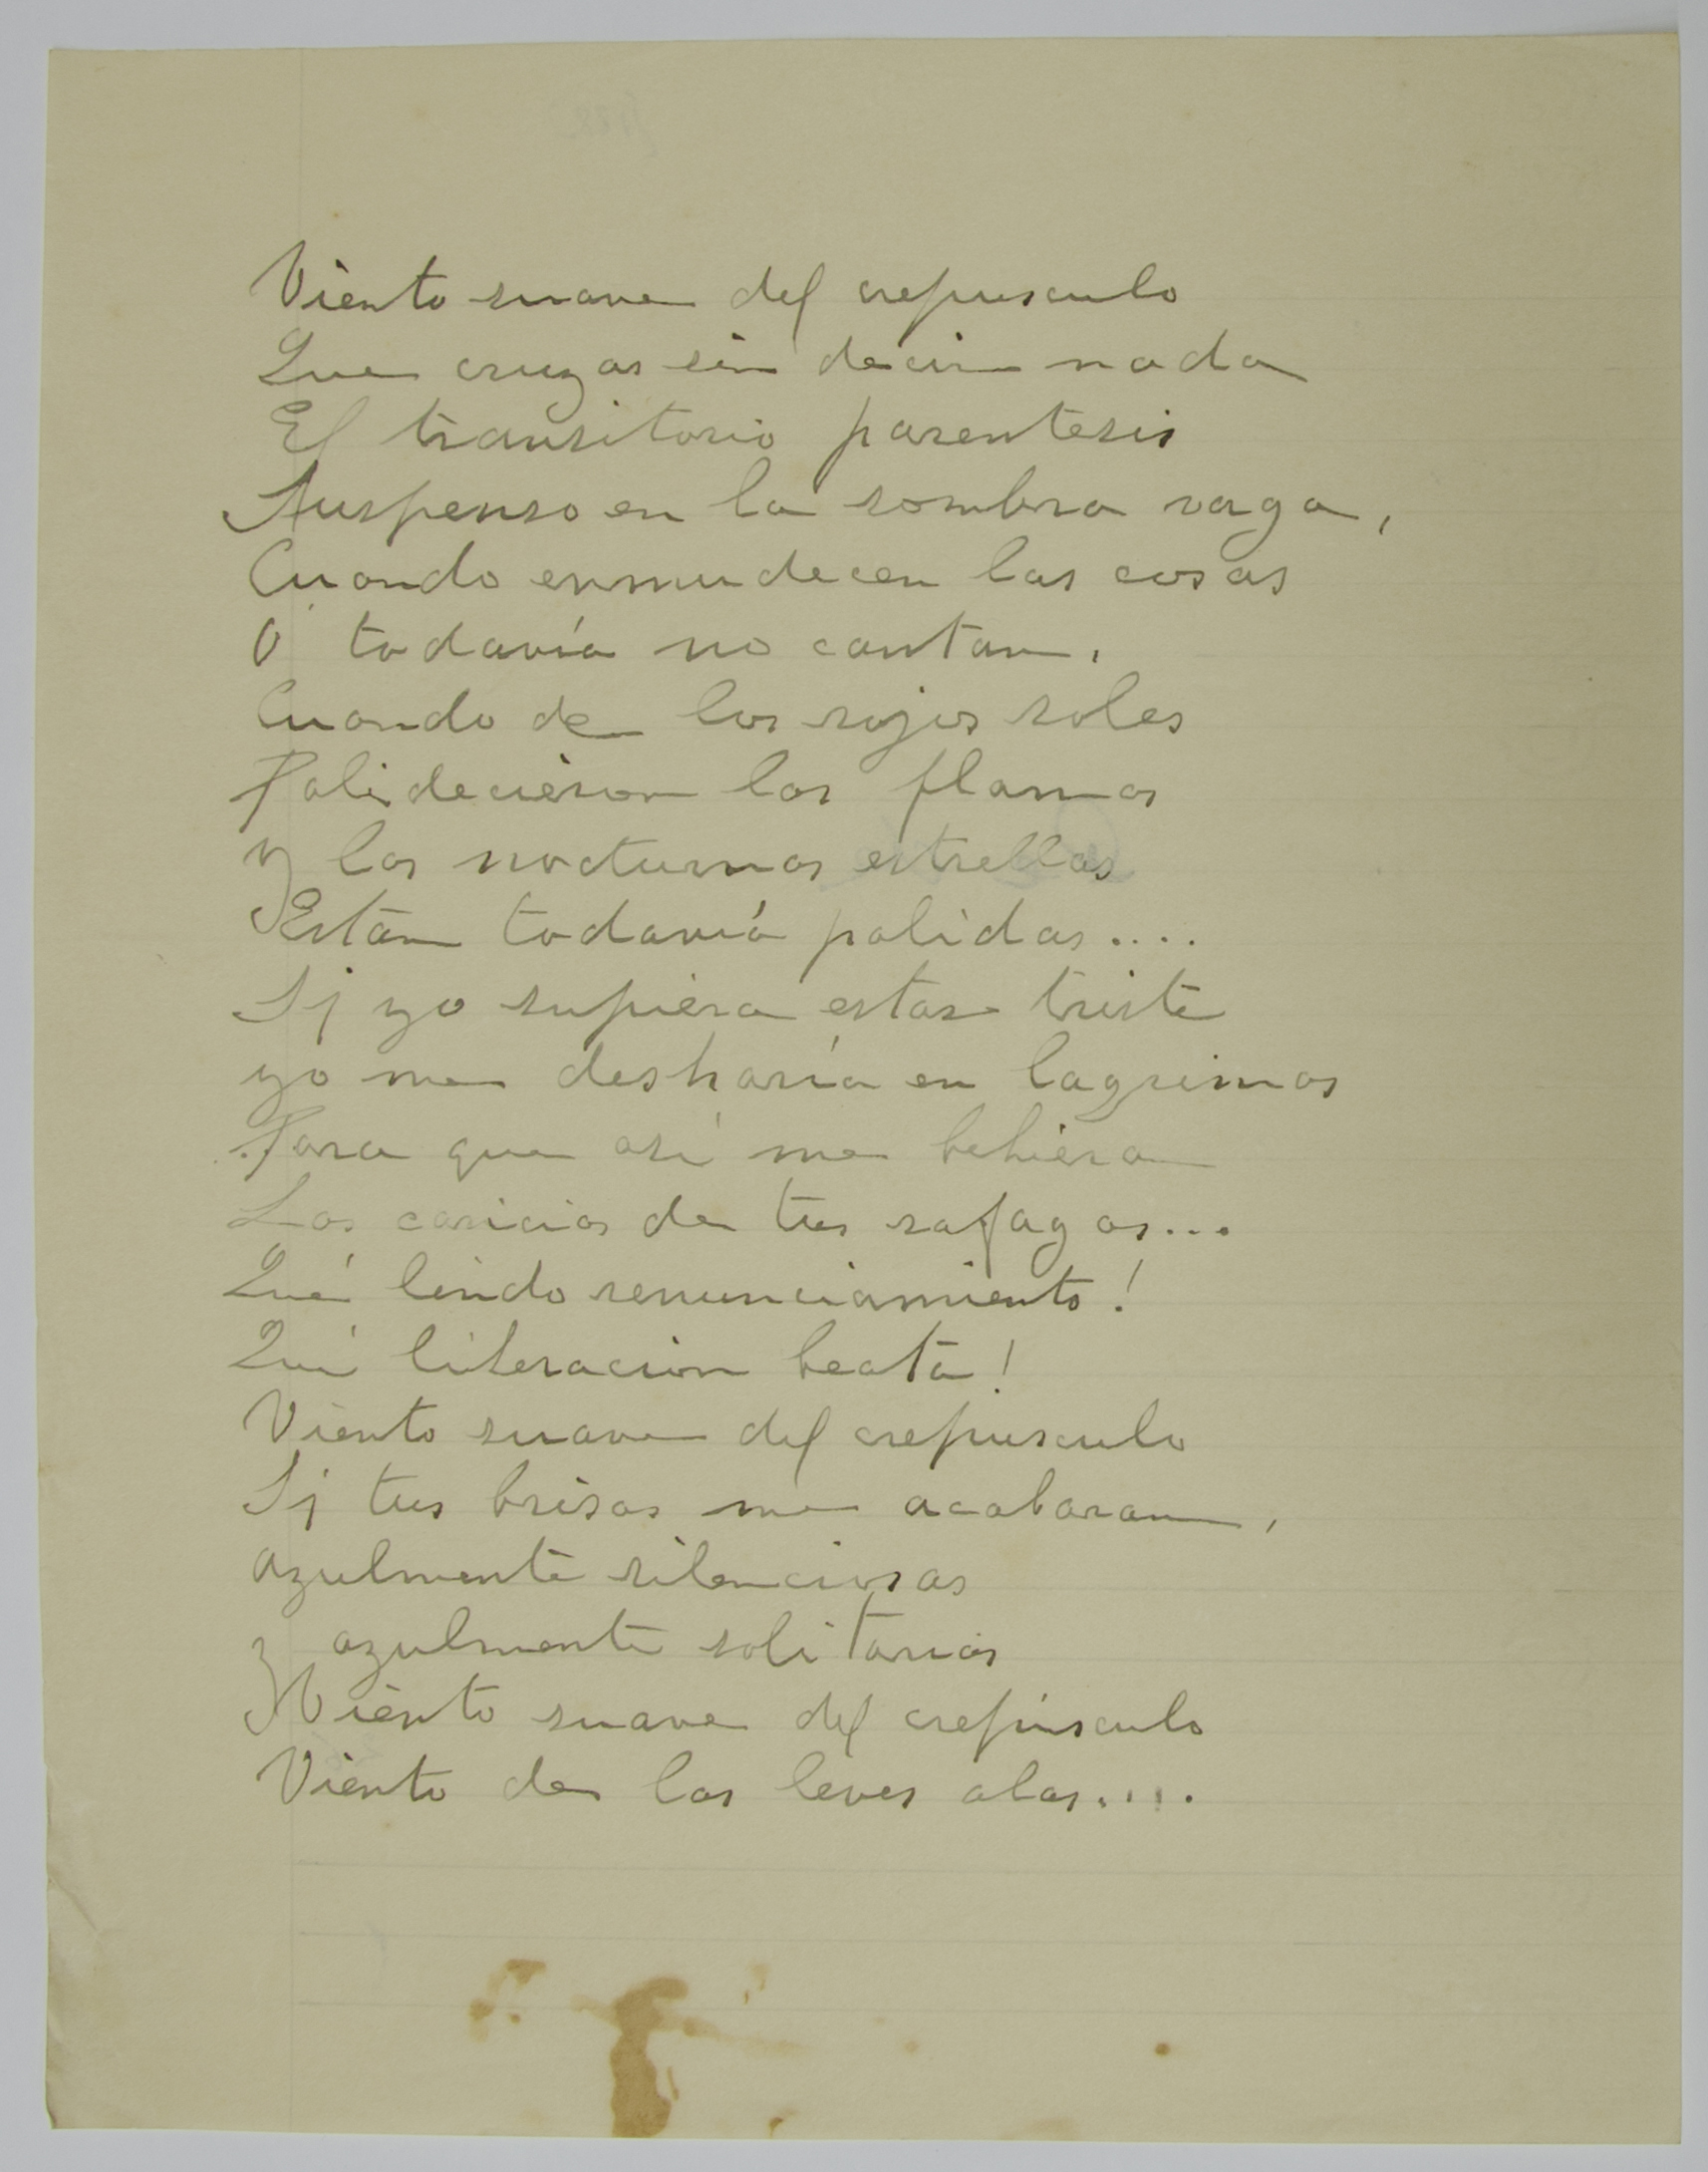 Viento suave del crepusculo
Que cruzas sin decir nada
El transitorio parentesis
Suspenso en la sombra vaga,
Cuando enmudecen las cosas
O todavía no cantan,
Cuando de los rojos soles
Palidecieron las flamas
y las nocturnas estrellas
Están todavía palidas....
Si yo supiera estar triste
yo me desharía en lagrimas
Para que así me bebiera
Las caricias de tus rafagas...
Qué lindo renunciamiento!
Qué liberacion beata!
Viento suave del crepusculo
Si tus brisas me acabaran,
azulmente silenciosas
y azulmente solitarias
Viento suave del crepúsculo
Viento de las leves alas....